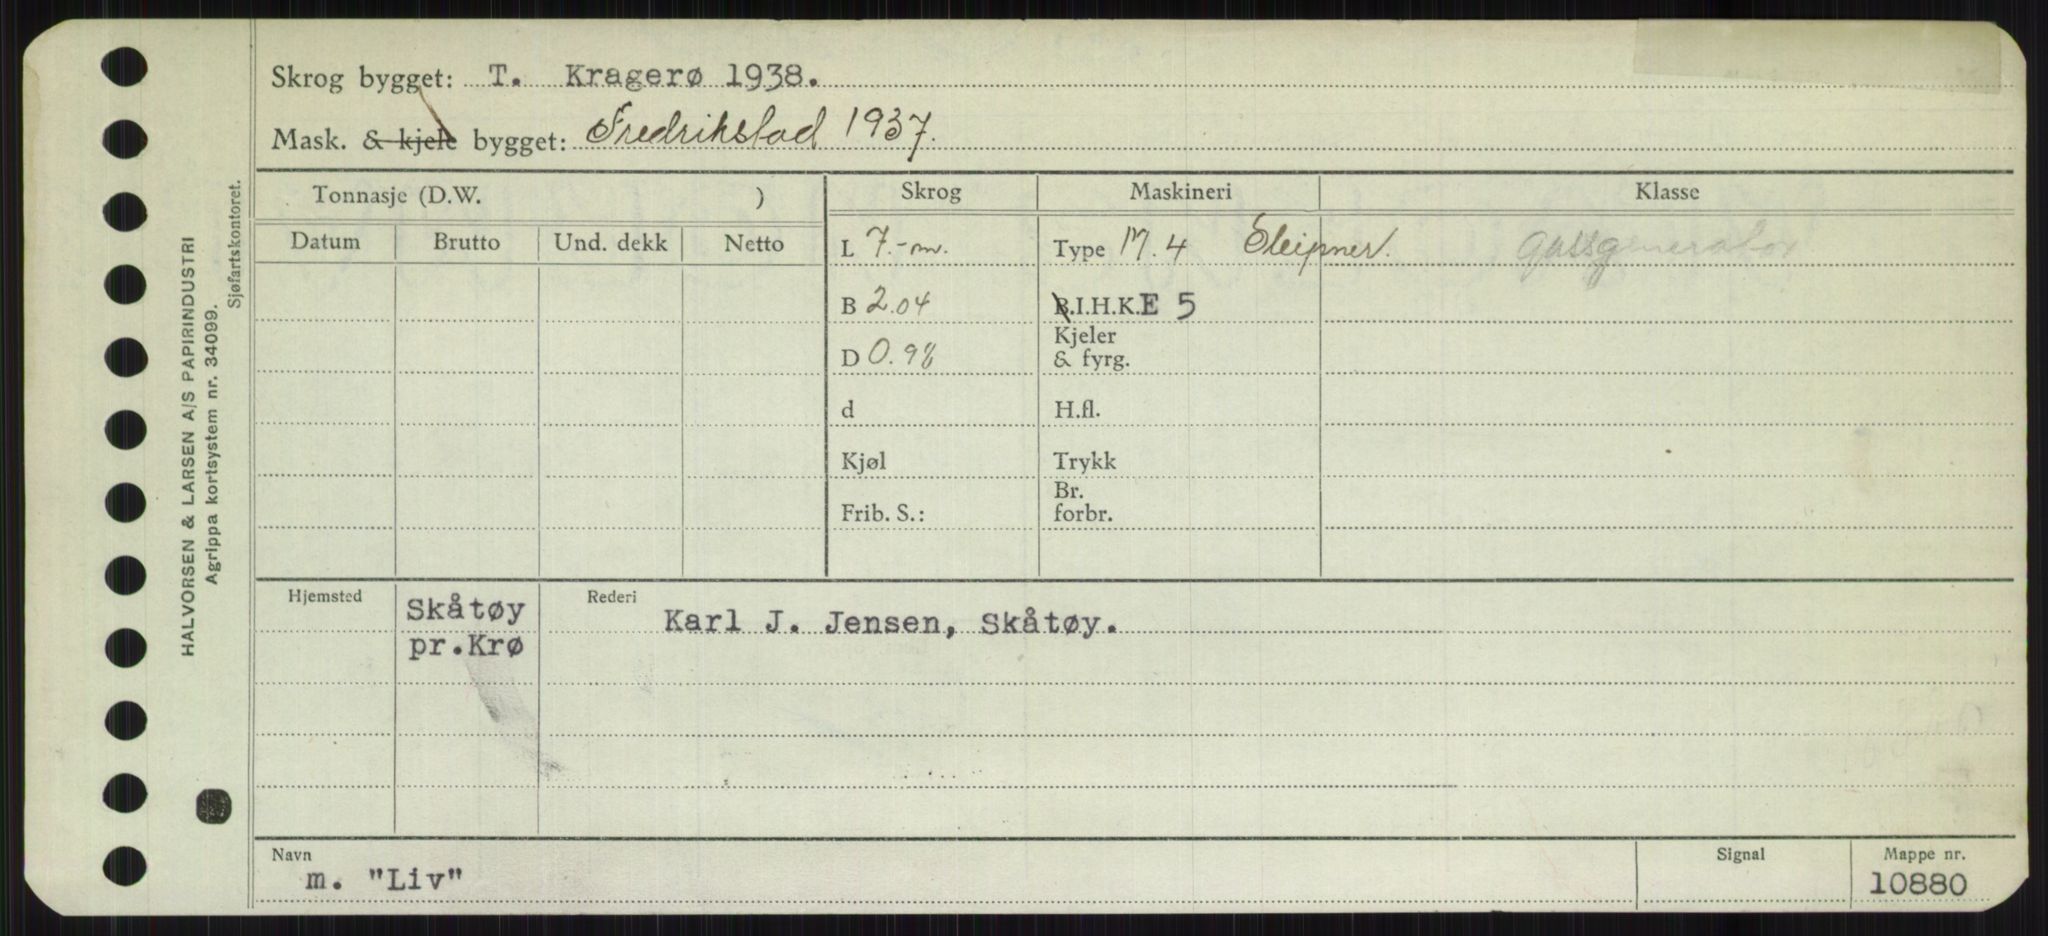 Skrog bygget: T. Kragerø 1938.
Mask. & kjele bygget: Fredrikstad 1937.
Tonnasje (D.W. )
Skrog
Maskineri
Klasse
Datum
Brutto
Und. dekk
Netto
L 7.-m.
Type M.4 Sleipner.
gassgenerator
B 2.04
B.I.H.K.E 5
D 0.98
Kjeler
& fyrg.
d
H.fl.
Kjøl
Trykk
Frib. S.:
Br.
forbr.
Hjemsted
Skåtøy
pr.Krø
Rederi
Karl J. Jensen, Skåtøy.
Navn
m. "Liv"
Signal
Mappe nr.
10880
HALVORSEN & LARSEN A/S PAPIRINDUSTRI
Agrippa kortsystem nr. 34099.
Sjøfartskontoret.